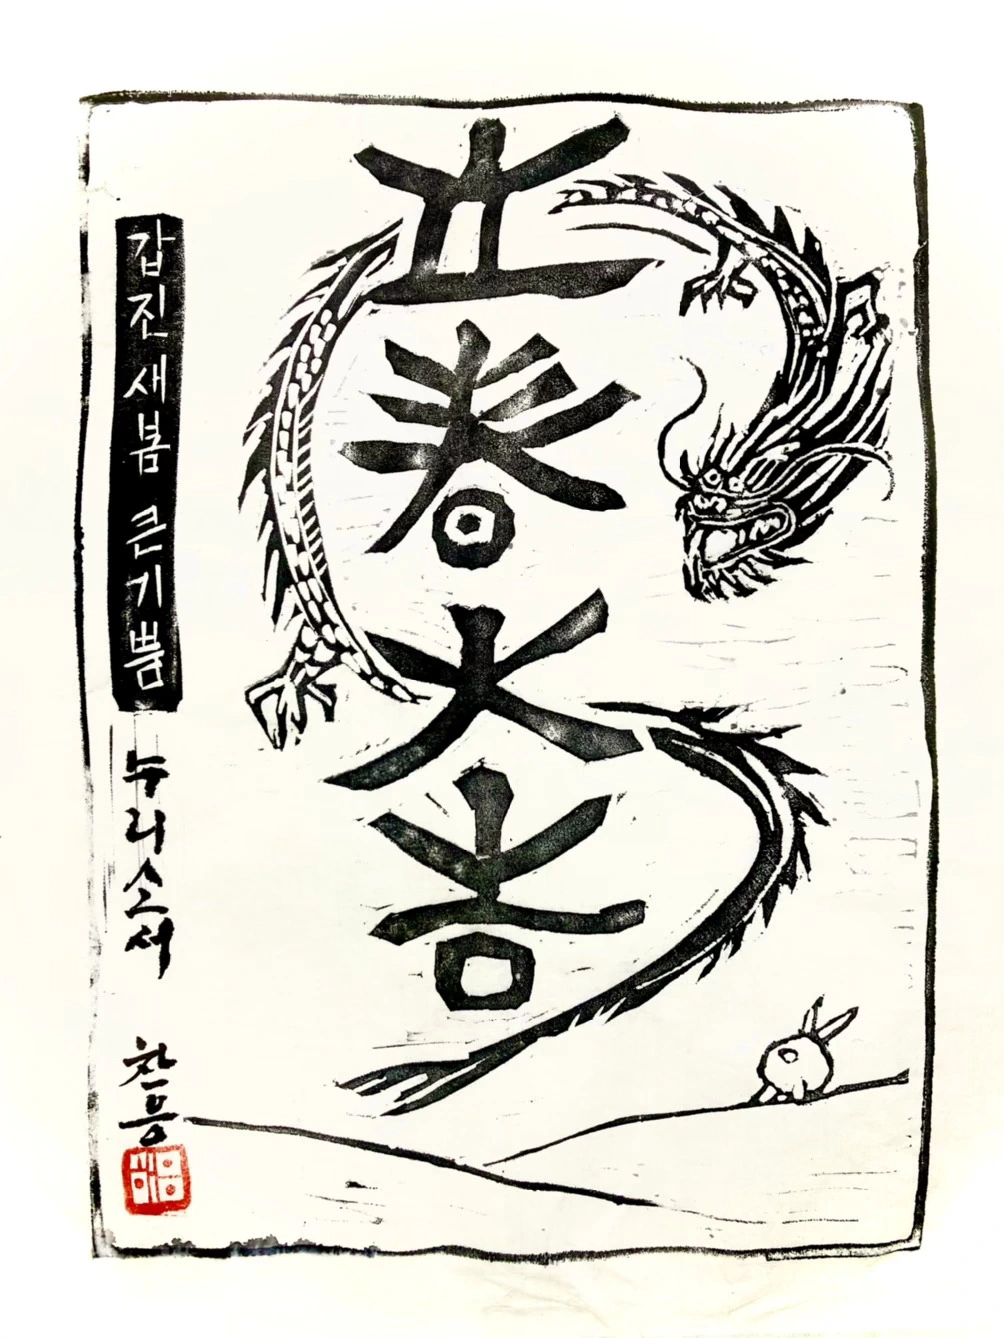 立春大吉
갑진새봄 큰기쁨
누리소서
찬응